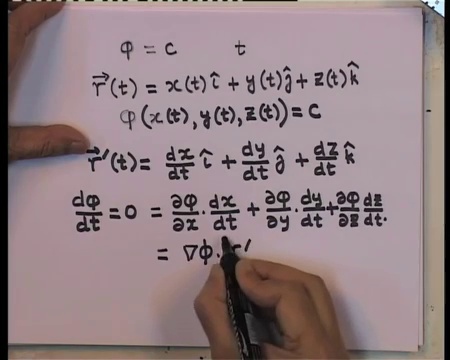 φ = c t
r⃗(t) = x(t) î + y(t) ĵ + z(t) k̂
φ(x(t), y(t), z(t)) = c
r⃗'(t) = dx/dt î + dy/dt ĵ + dz/dt k̂
dφ/dt = 0 = ∂φ/∂x · dx/dt + ∂φ/∂y · dy/dt + ∂φ/∂z dz/dt.
= ∇φ · r'